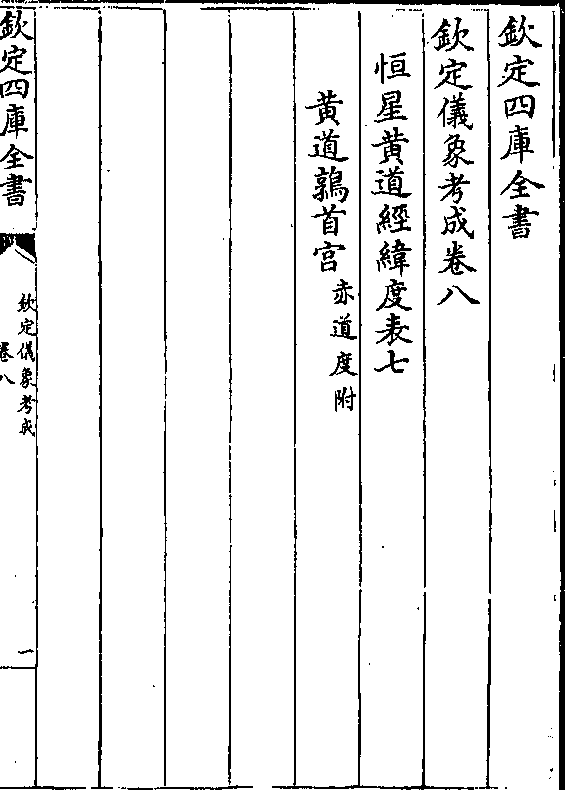 欽定四庫全書
欽定儀象考成卷八
恒星黄道經緯度表七
黄道鶉首宫赤道度附
欽定四庫全書
欽定儀象考成
卷八
一